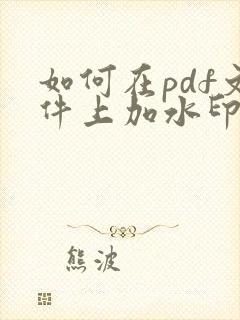 如何在pdf文
件上加水印
熊波